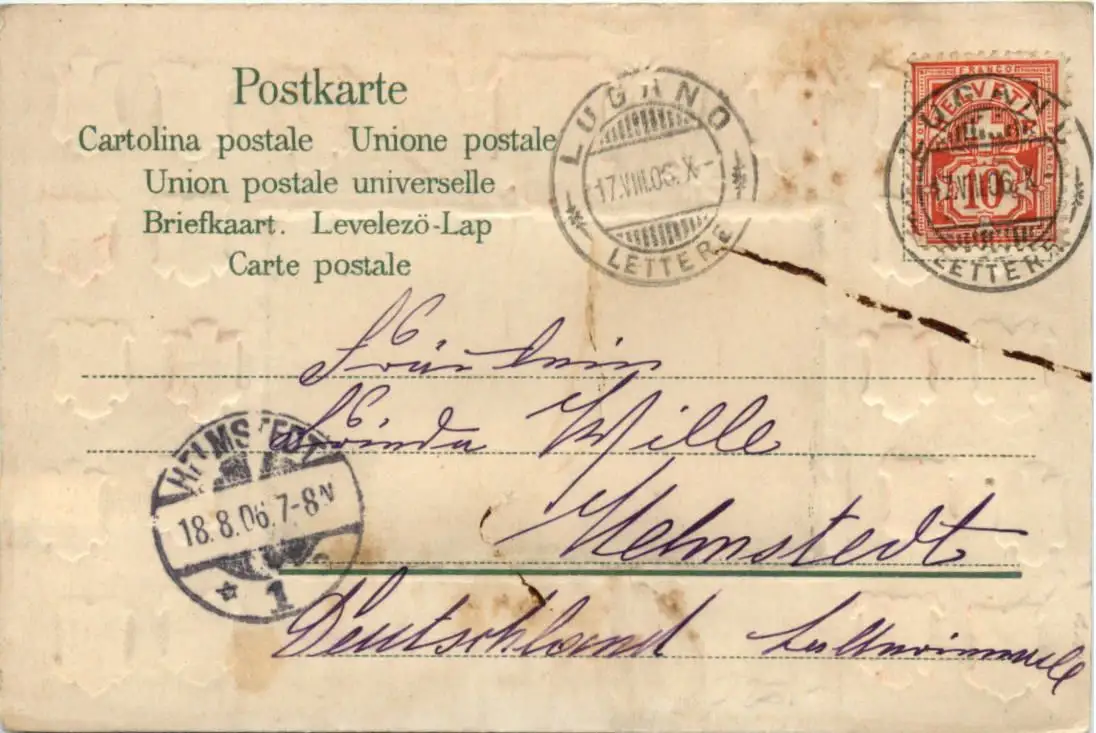 Postkarte
Cartolina postale Unione postale
Union postale universelle
Briefkaart. Levelezö-Lap
Carte postale
LUGANO
17.VIII.06.X-
LETTERE
FRANCO
HELVETIA
10
LUGANO
17.VIII.06.X
LETTERE
Fräulein
Wille
Helmstedt
Deutschland
HELMSTEDT
18.8.06.7-8N
* 1